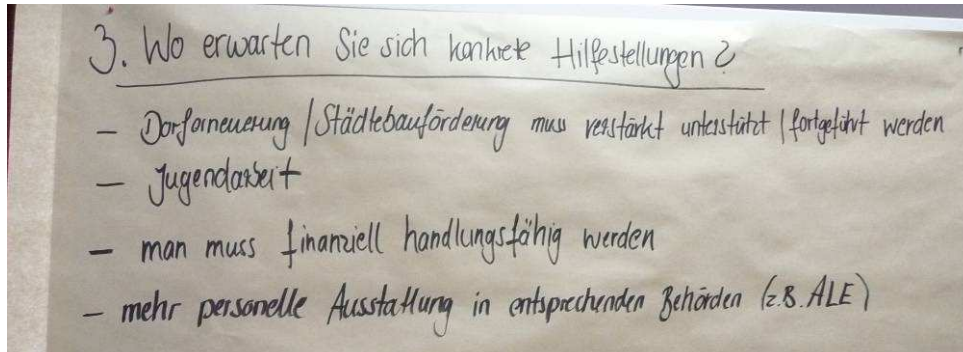 3. Wo erwarten Sie sich konkrete Hilfestellungen?
- Dorferneuerung / Städtebauförderung muss verstärkt unterstützt / fortgeführt werden
- Jugendarbeit
- man muss finanziell handlungsfähig werden
- mehr personelle Ausstattung in entsprechenden Behörden (z.B. ALE)